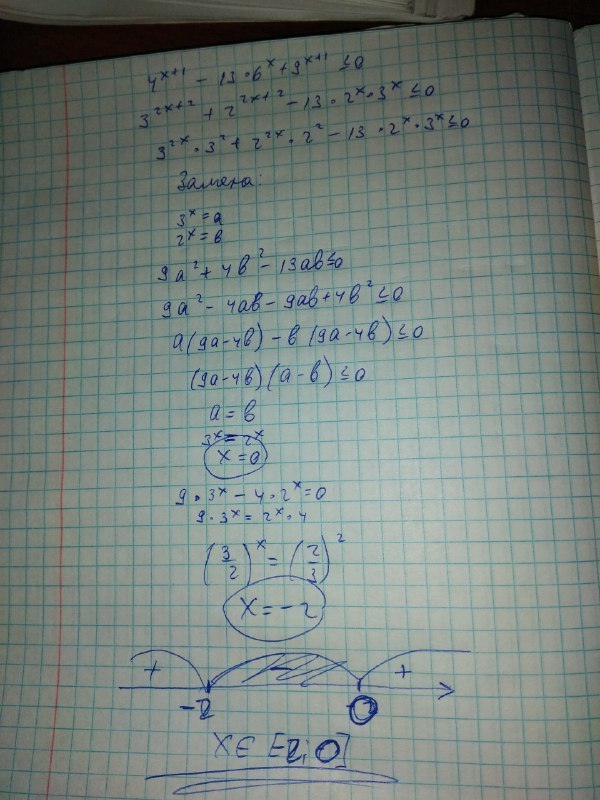 4^(x+1) - 13·6^x + 9^(x+1) ≤ 0
3^(2x+2) + 2^(2x+2) - 13·2^x·3^x ≤ 0
3^(2x)·3^2 + 2^(2x)·2^2 - 13·2^x·3^x ≤ 0
Замена:
3^x = a
2^x = в
9a² + 4в² - 13aв ≤ 0
9a² - 4aв - 9aв + 4в² ≤ 0
a(9a-4в) - в(9a-4в) ≤ 0
(9a-4в)(a-в) ≤ 0
a = в
3^x = 2^x
x = 0
9·3^x - 4·2^x = 0
9·3^x = 2^x·4
(3/2)^x = (2/3)^2
x = -2
+ - +
-2 0
x ∈ [-2; 0]